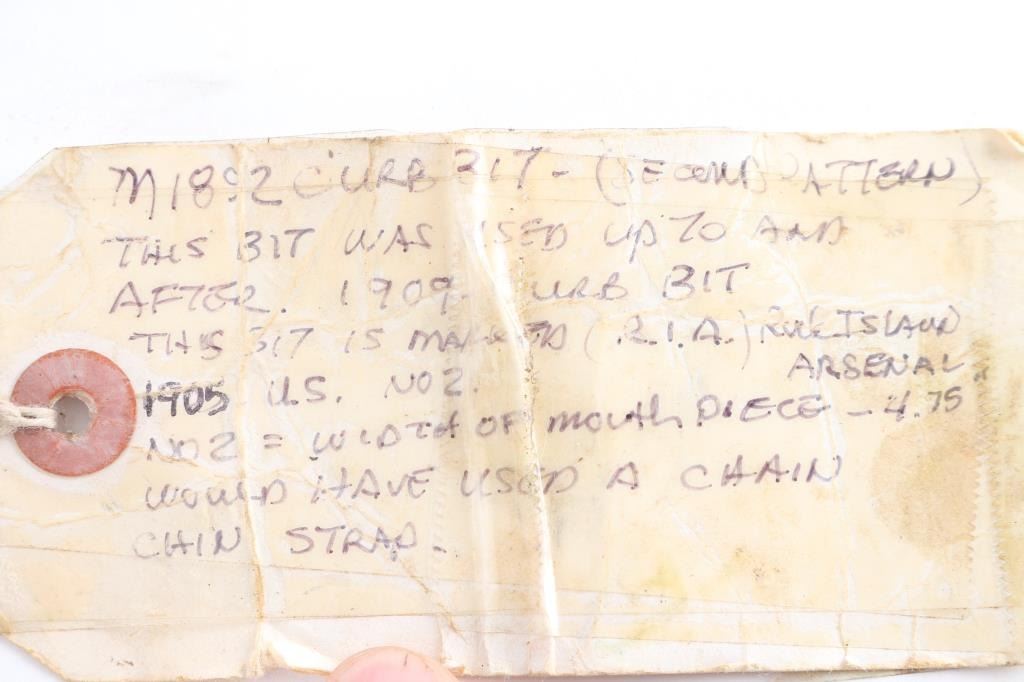 M1892 CURB BIT - (SECOND PATTERN)
THIS BIT WAS USED UP TO AND
AFTER. 1909 CURB BIT
THIS BIT IS MARKED (R.I.A.) ROCK ISLAND
ARSENAL
1905 U.S. NO2.
NO2 = WIDTH OF MOUTH PIECE - 4.75
WOULD HAVE USED A CHAIN
CHIN STRAP.